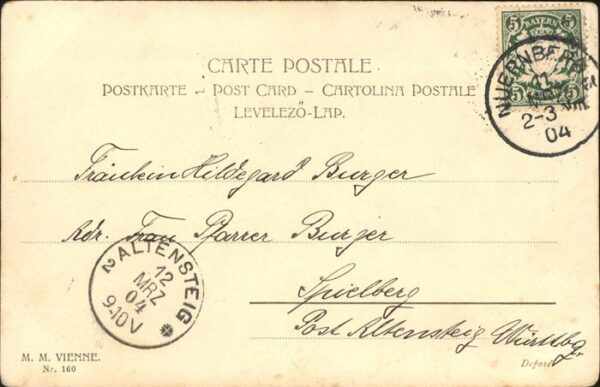 CARTE POSTALE
POSTKARTE – POST CARD – CARTOLINA POSTALE
LEVELEZŐ-LAP.
5 BAYERN 5
5 5
NUERNBERG
11
MRZ
2-3
04
Fräulein Hildegard Burger
Adr. Frau Pfarrer Burger
Spielberg
Post Altensteig Württbg.
ALTENSTEIG
12
MRZ
04
9-10V
M. M. VIENNE.
Nr. 160
Deposé